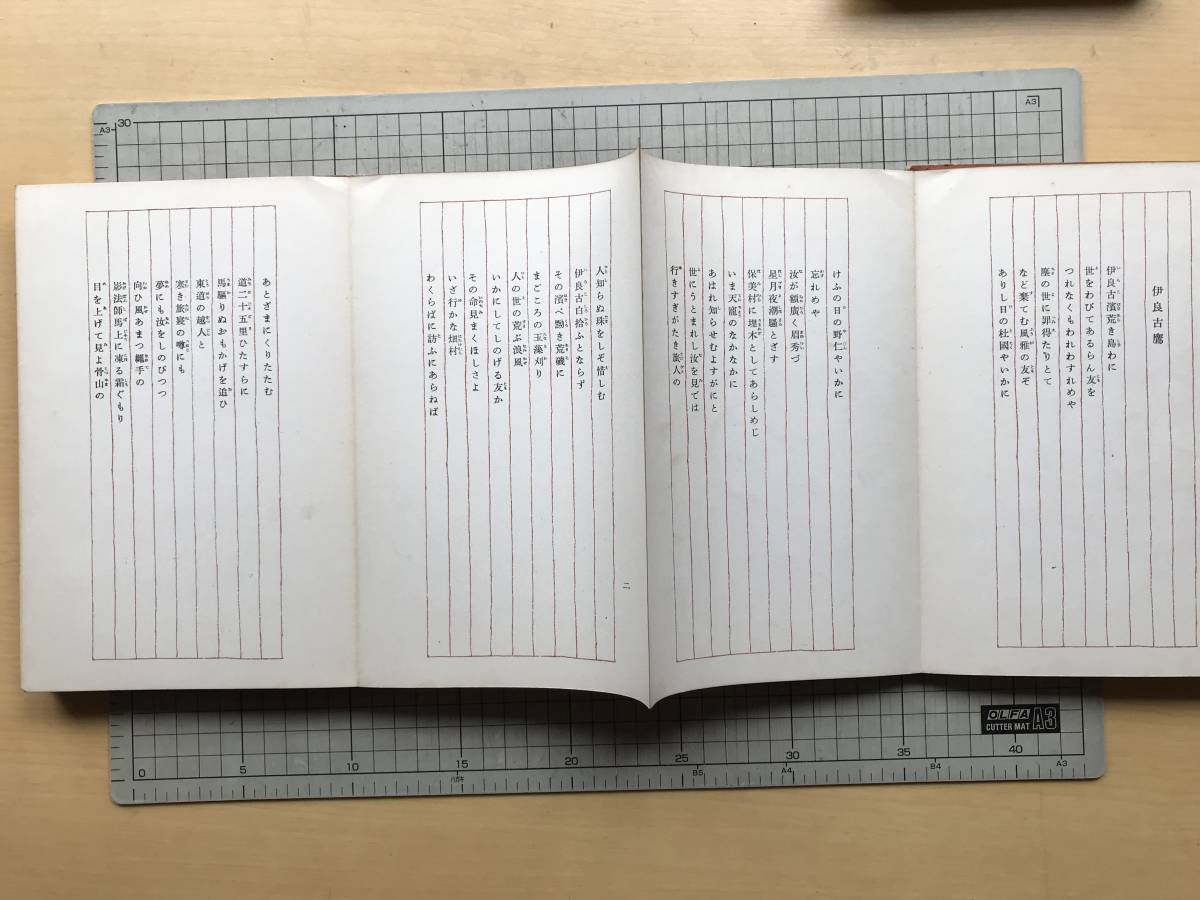 伊良古鷹
伊良古濱荒き島わに
世をわびてあるらん友を
つれなくもわれわすれめや
塵の世に罪得たりとて
など棄てむ風雅の友ぞ
ありし日の杜國やいかに
一
けふの日の野仁やいかに
忘れめや
汝が額廣く眉秀づ
星月夜潮騷とざす
保美村に埋木としてあらしめじ
いま天寵のなかなかに
あはれ知らせむよすがにと
世にうとまれし汝を見では
行きすぎがたき旅人の
人知らぬ珠をしぞ惜しむ
伊良古白拾ふとならず
その濱べ黝き荒磯に
まごころの玉藻刈り
人の世の荒ぶ浪風
いかにしてしのげる友か
その命見まくほしさよ
いざ行かな畑村
わくらばに訪ふにあらねば
二
あとざまにくりたたむ
道二十五里ひたすらに
馬驅りぬおもかげを追ひ
東道の越人と
寒き旅寢の囃にも
夢にも汝をしのびつつ
向ひ風あまつ繩手の
影法師馬上に凍る霜ぐもり
目を上げて見よ骨山の
A3
30
A3
OLFA A3
CUTTER MAT
0 5 10 15 20 25 30 35 40
B5 A4 B4 A3